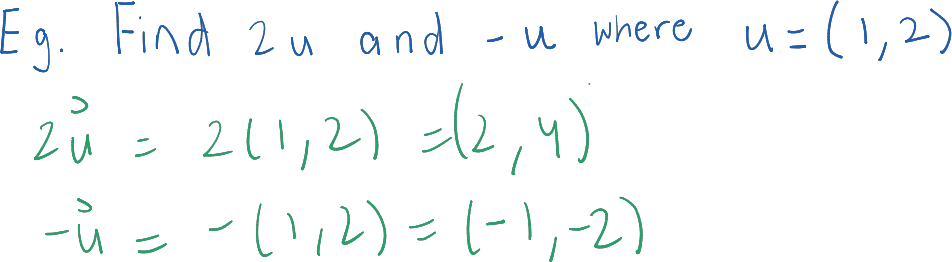 Eg. Find 2u and -u where u=(1,2)
2u⃗ = 2(1,2) =(2,4)
-u⃗ = -(1,2) = (-1,-2)